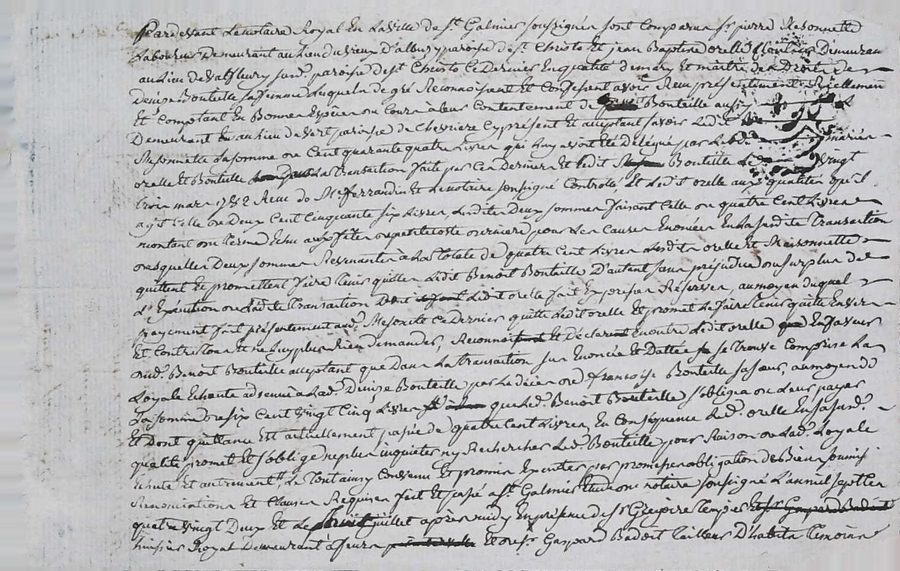 Pardevant Le notaire Royal En La ville de St. Galmier soussigné sont Comparus Sr. pierre Resonnette
Laboureur Demeurant au Lieu du vieux D'albuzy paroisse de st. Christo Et jean Baptiste orelle Demeurant
au Lieu de valfleury susd. paroisse de st. Christo Ce Dernier En qualité de mary Et maitre des Droits de
Denize Bouteille sa femme Lesquels de gré Reconnoissent Et Confessent avoir Reçu présentement Réellement
Et Comptant En Bonnes Espèces ou Cours à Leur Contentement de Bouteille aussy
Demeurant au Lieu de paroisse de Chevriere Cy présent Et acceptant savoir Ledit
Resonnette La somme de Cent quarante quatre Livres qui Luy avoit été Déléguée par Led.
orelle Et Bouteille La transaction fait par Ce Dernier Et Ledit Bouteille Le vingt
trois mars 1782 Reçu de Me. ferrandin Et Le notaire soussigné Controllé Et Ledit orelle aux qualités qu'il
agit Celle de Deux Cent Cinquante six Livres Lesdites Deux sommes faisant Celle de quatre Cent Livres
montant du Terme Echu aux fêtes de pentecoste dernière pour Les Causes Enoncées En La susdite Transaction
desquelles Deux sommes Revenantes à La Totale de quatre Cent Livres Lesdits orelle Et Resonnette
quittent Et promettent faire Tenir quitte Ledit Benoit Bouteille D'autant sans préjudice du surplus de
L'Exécution de Ladite Transaction Ledit orelle fait Expresses Réserves au moyen duquel
payement fait présentement aud. Resonette Ce Dernier quitte Ledit orelle Et promet Le faire Tenir quitte Envers
Et Contre Tous Et ne Luy plus Rien demander, Reconnoissant Et Déclarant Encontre Ledit orelle En faveur
dud. Benoit Bouteille acceptant que Dans La transaction sus Enoncée Et Dattée se Trouve Comprise La
Loyale Echute advenue à Lad. Denize Bouteille par Le décès de françoise Bouteille sa sœur, au moyen de
La somme de six Cent vingt Cinq Livres que Led. Benoit Bouteille s'obligea de Leur payer
Et Dont quittance Est actuellement passée de quatre Cent Livres En Conséquence Led. orelle En sa susd.
qualité promet Et s'oblige ne plus inquieter ny Rechercher Led. Bouteille pour Raison de Lad. Loyale
Echute Et autrement Le Tout ainsy Convenu Et promis Executer par promesse obligation des Biens soumis
Renonciations Et Clauses Requises fait Et passé à st. Galmier Etude du notaire soussigné L'an mil sept Cent
quatre vingt Deux Et Le juillet après midy En présence de Sr. Gregoire
huissier Royal Demeurant à Et de Sr. Gaspard Badoit Tailleur D'habits Temoins